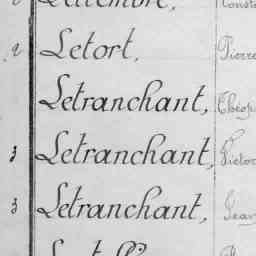 2 Letort, Pierre
Letranchant,
3 Letranchant, Victor
3 Letranchant, Jean